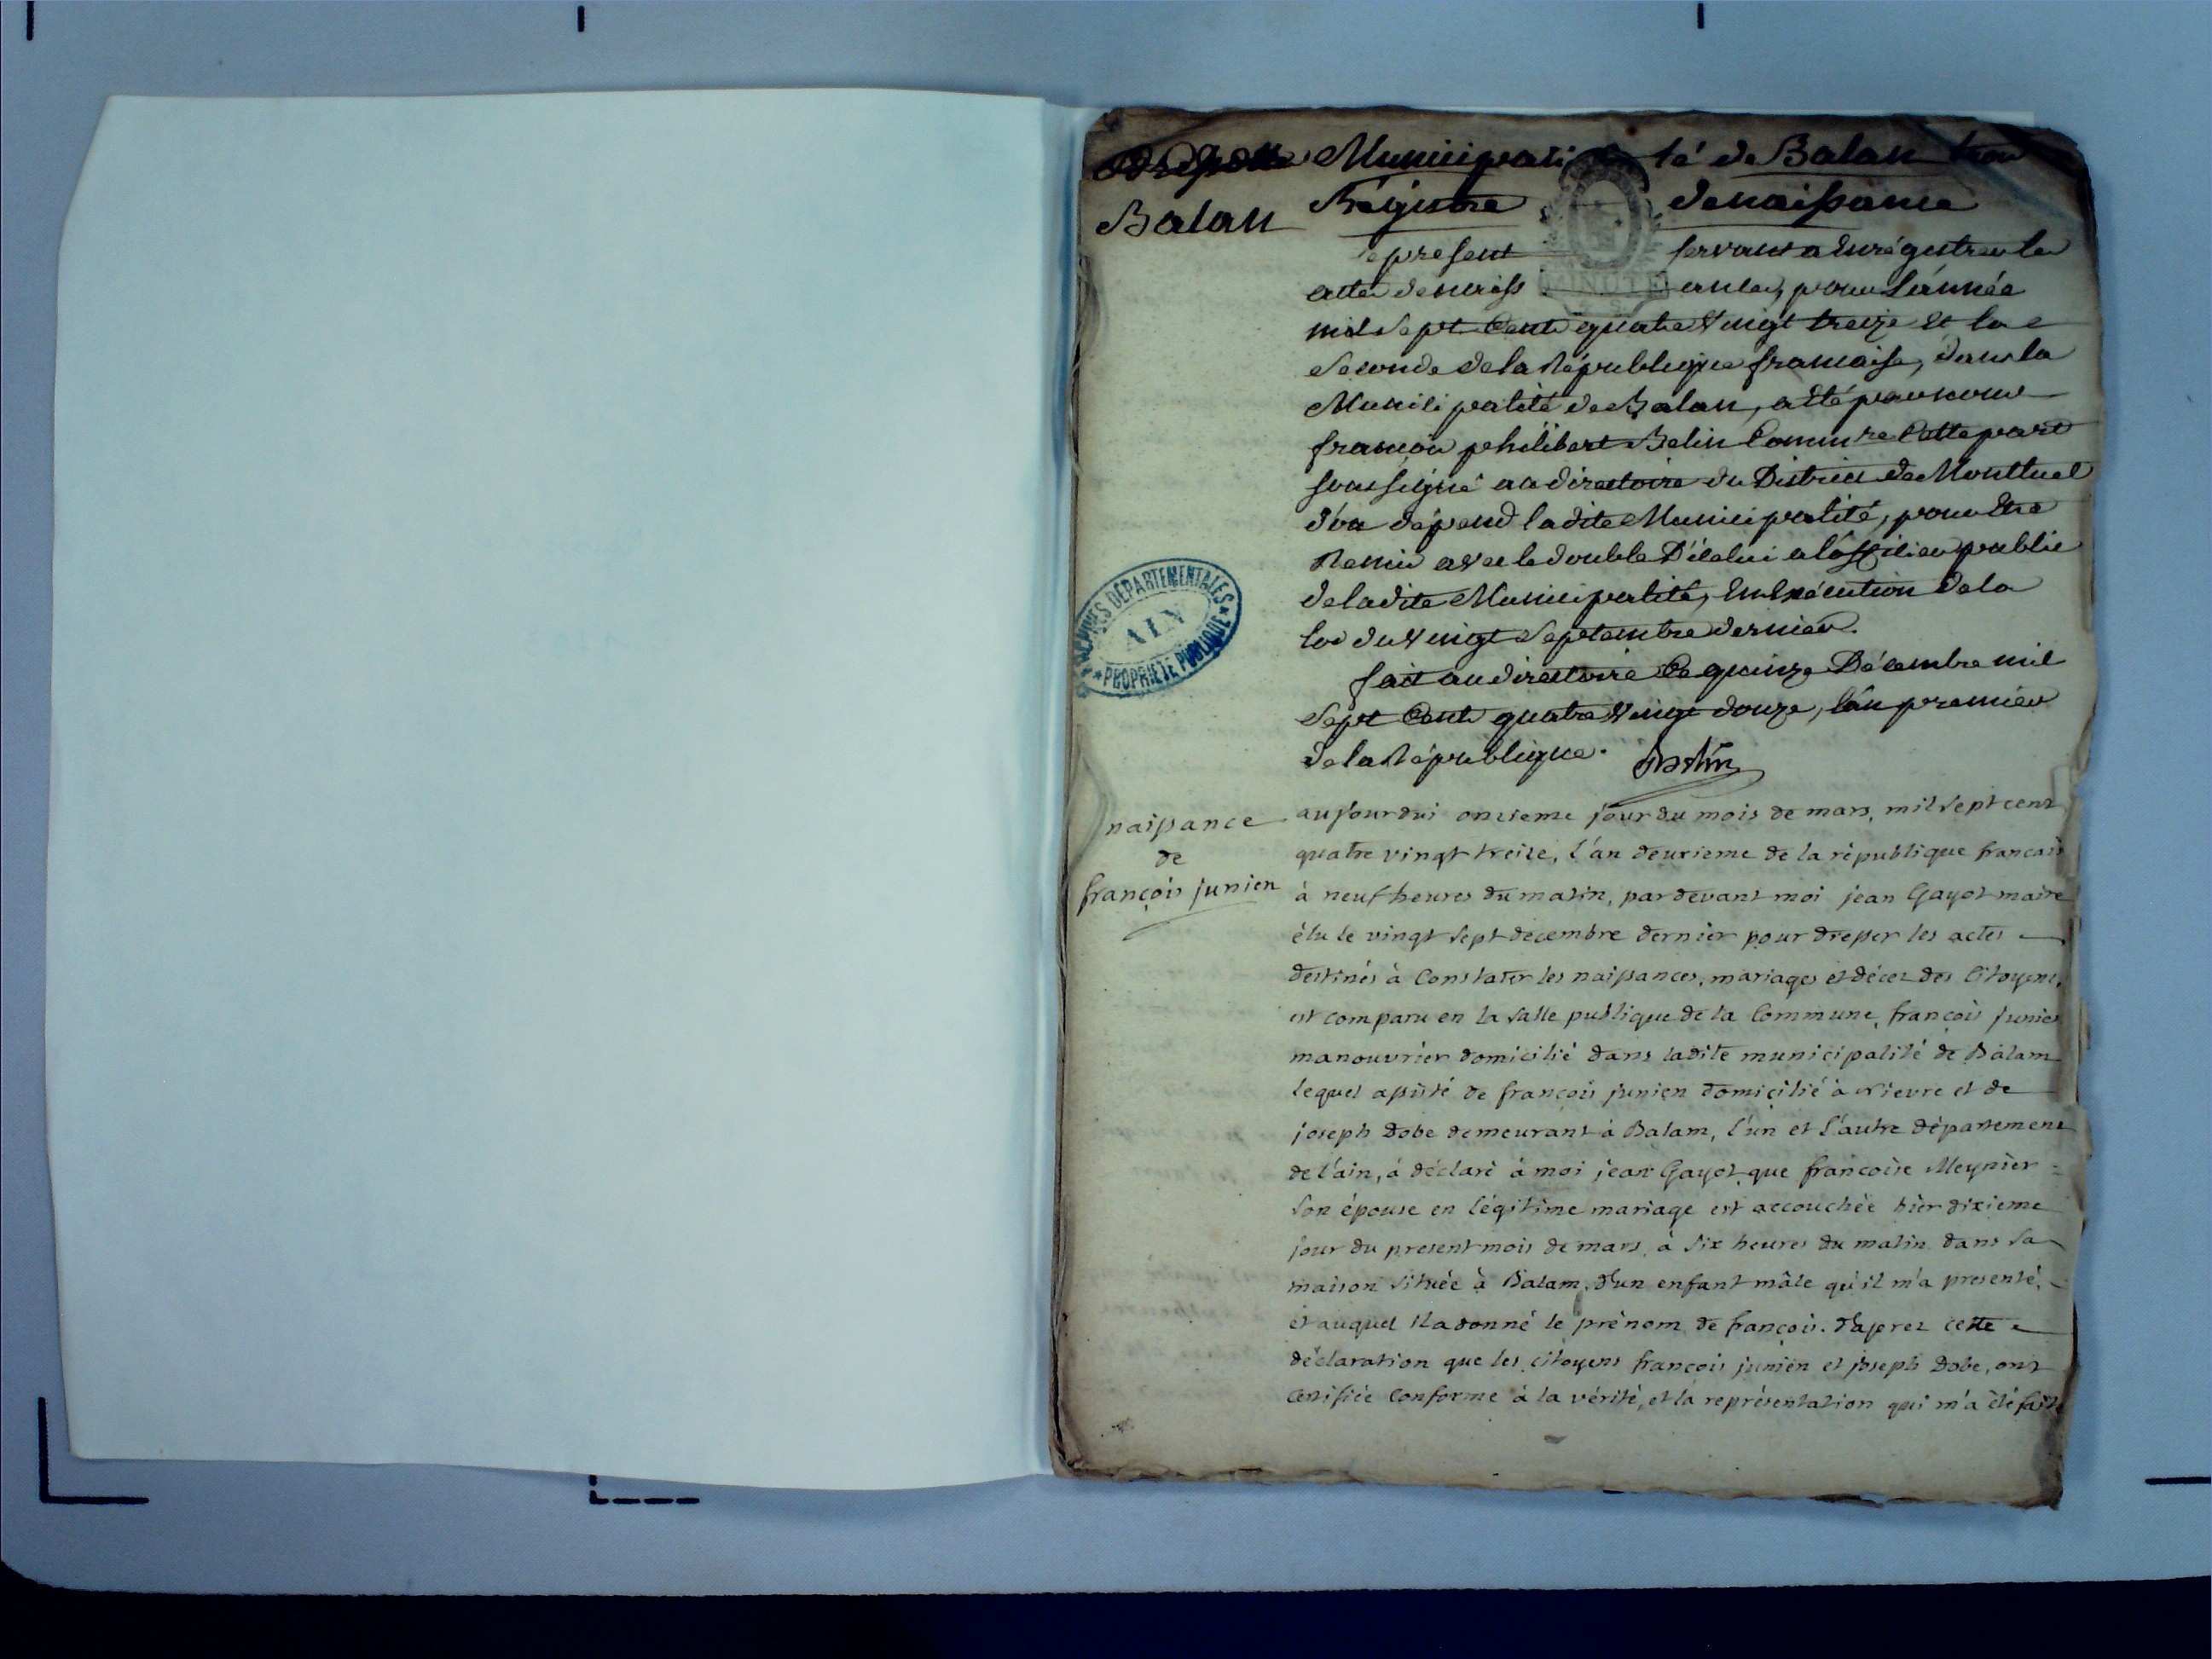 Municipalité de Balan
Balan
Régistre de naissance
Le present servant a Enrégistrer les
actes de naissances, pour L'année
mil Sept Cents quatre Vingt treize et la
Seconde de la République francaise, dans la
Municipalité de Balan, a Eté par nous
francois philibert Belin Commre Cette part
soussigné au directoire du District de Montluel
d'où dépend ladite Municipalité, pour Etre
Remis avec le double D'icelui a l'officier public
de ladite Municipalité, En Exécution de la
loi du Vingt Septembre dernier.
fait au directoire Ce quinze Décembre mil
Sept Cents quatre Vingt douze, l'an premier
de la République.
ARCHIVES DEPARTEMENTALES
AIN
PROPRIETE PUBLIQUE
naissance
de
françois junien
aujourdui onzieme jour du mois de mars, mil sept cent
quatre vingt treize, l'an deuxieme de la rèpublique francais
à neuf heures du matin, par devant moi jean Gayot maire
élu le vingt sept decembre dernier pour dresser les actes
destinés à Constater les naissances, mariages et décez des Citoyens,
est comparu en la salle publique de la Commune, françois junien
manouvrier domicilié dans ladite municipalité de Balam
lequel assisté de françois junien domicilié à Nievre et de
joseph Dobe demeurant à Balam, l'un et l'autre département
de l'ain, à déclaré à moi jean Gayot que francoise Meynier
son épouse en légitime mariage est accouchée hier dixieme
jour du present mois de mars, à six heures du matin dans sa
maison située à Balam, d'un enfant mâle qu'il m'a presenté,
et auquel il a donné le prènom de françois. d'aprez cette
déclaration que les citoyens françois junien et joseph Dobe, ont
certifiée Conforme à la vérité, et la représentation qui m'a été faite